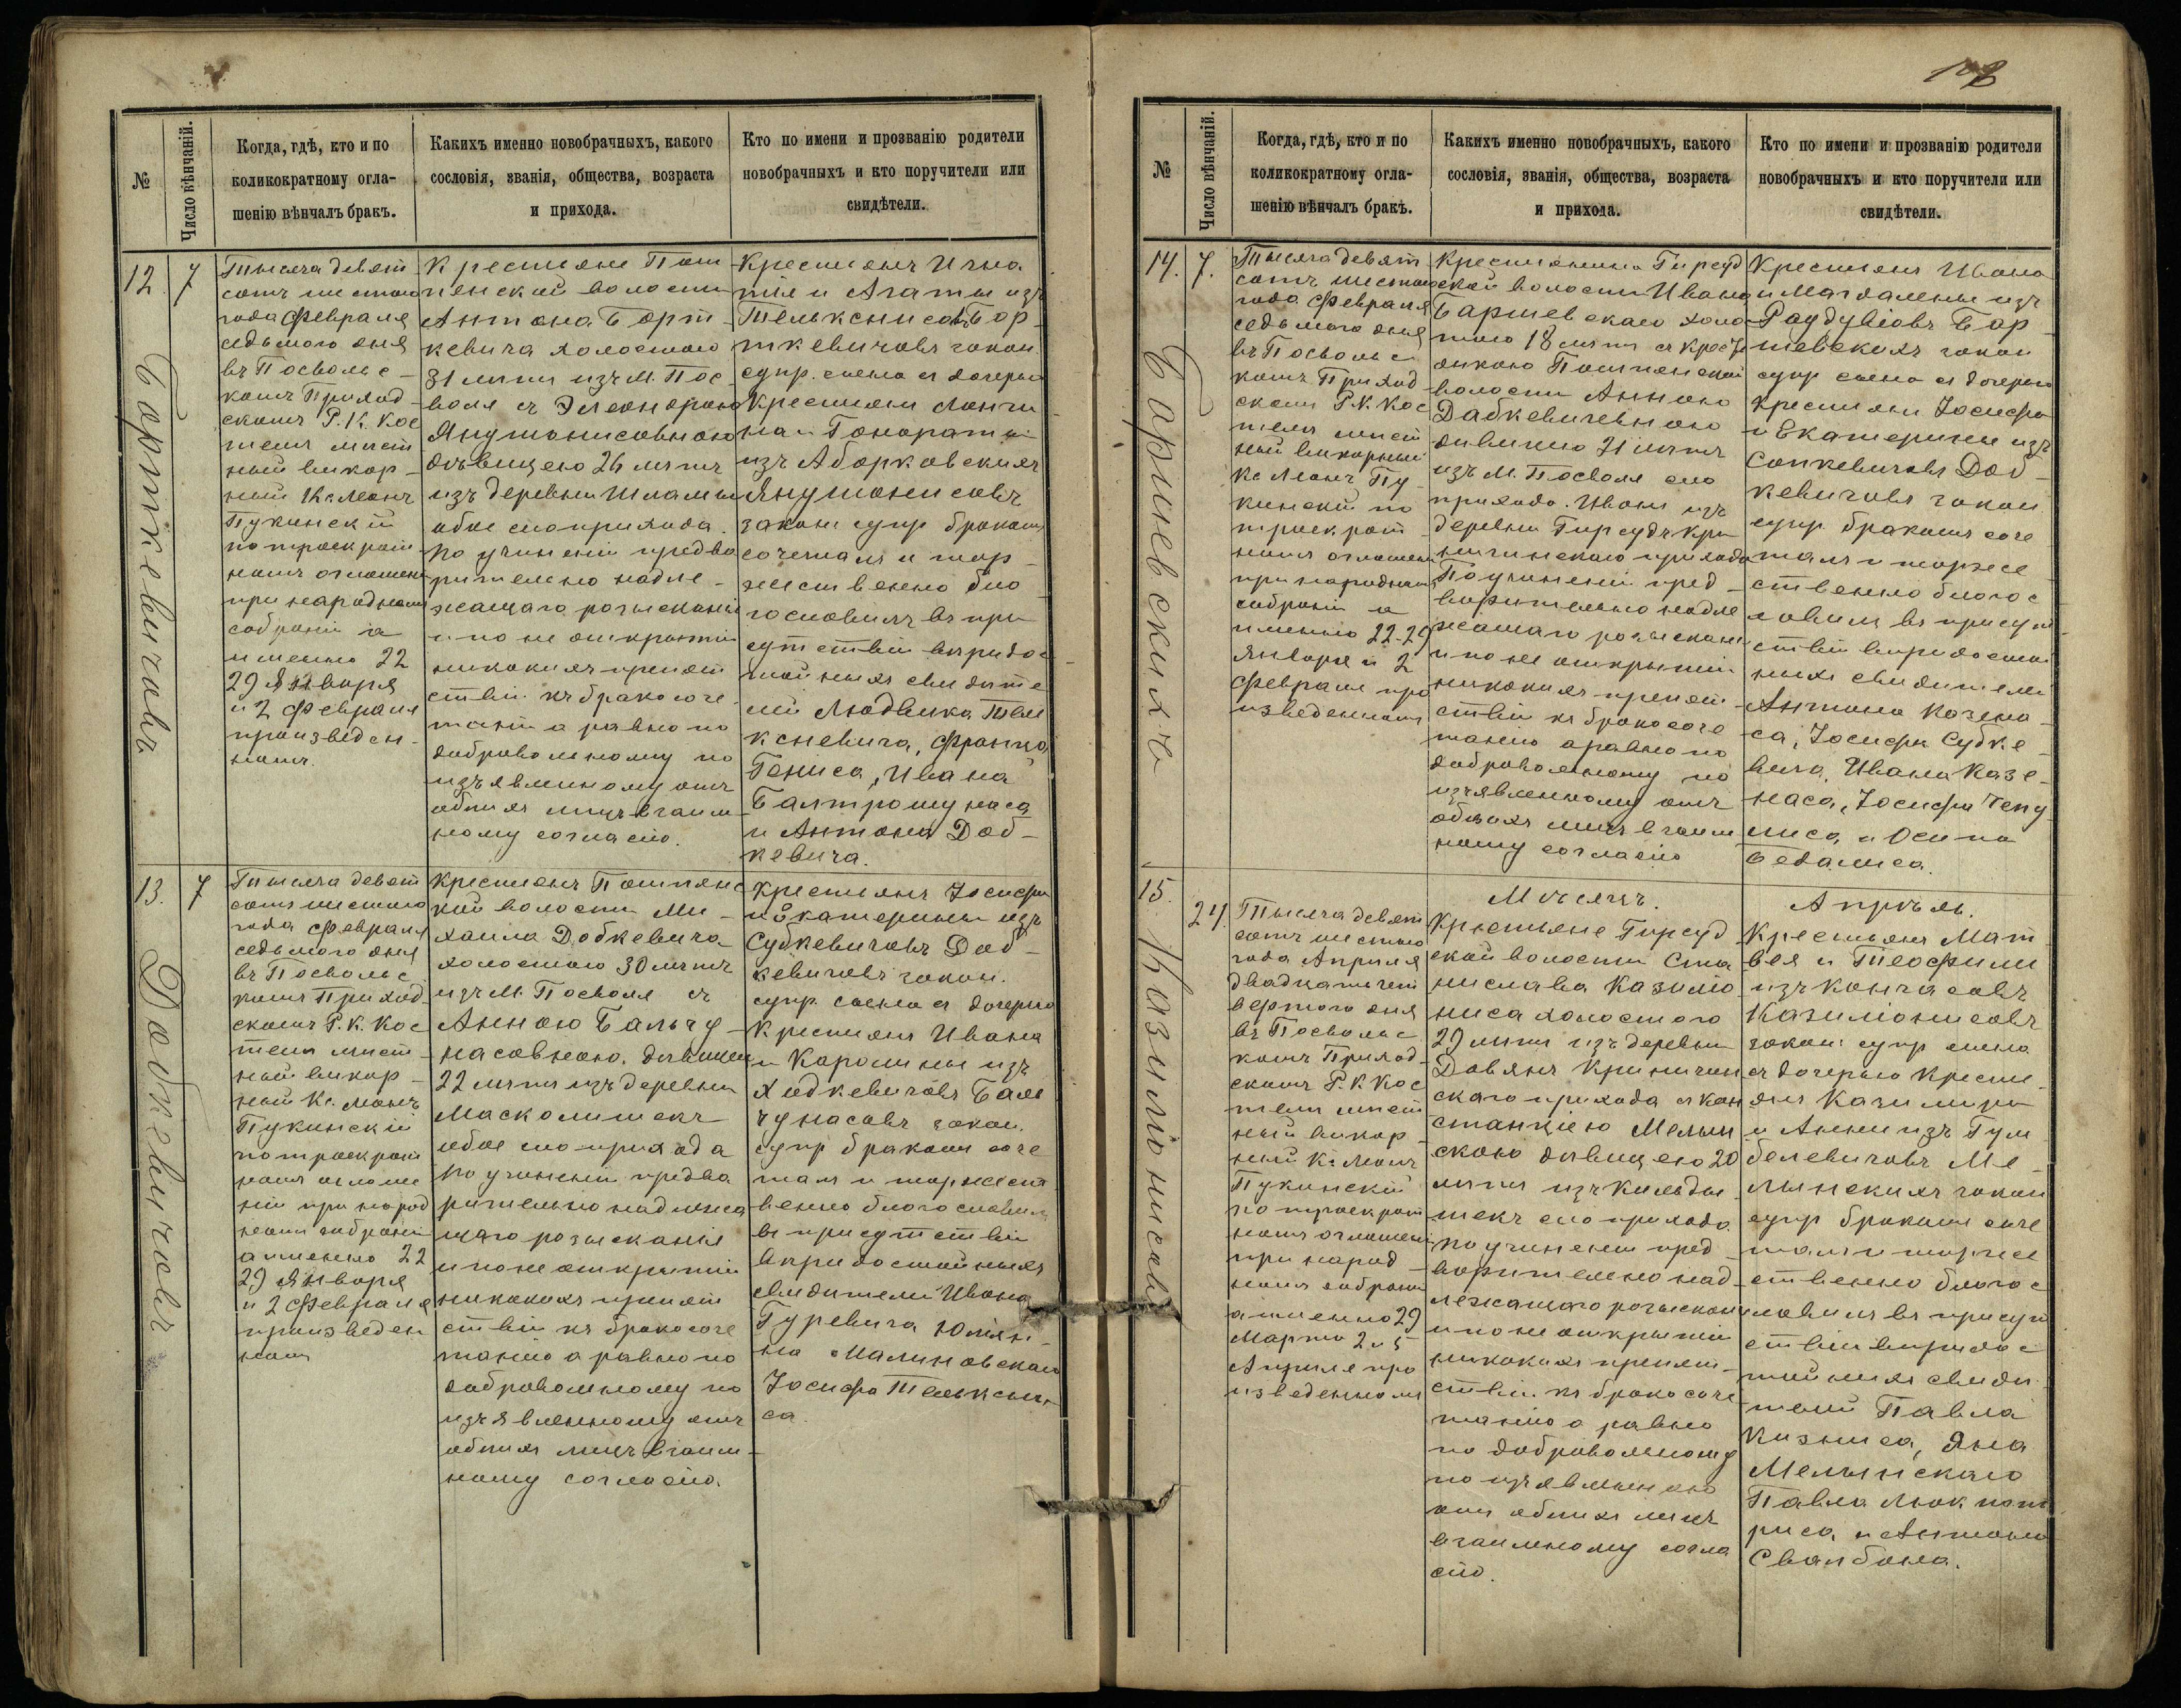 №
Число вѣнчаній.
Когда, гдѣ, кто и по
коликократному огла-
шенію вѣнчалъ бракъ.
Какихъ именно новобрачныхъ, какого
сословія, званія, общества, возраста
и прихода.
Кто по имени и прозванію родители
новобрачныхъ и кто поручители или
свидѣтели.
12
7
Борткевичовъ
Тысяча девят
сотъ шестого
года Февраля
седьмого дня
въ Посволь с-
комъ Приход
скомъ Р. К. Кос
телѣ мѣст
ный викар-
ный Кс. Монч
Пукинскій
по троекрат
номъ оглашени
при народномъ
собраніи а
именно 22
29 Января
и 2 Февраля
произведен-
номъ.
Крестьяне Пом
пенской волости
Антона Борт-
кевича холостого
31 лѣтъ изъ М. Пос-
воля съ Элеонорою
Янушонисовною
дѣвицею 26 лѣтъ
изъ деревни Шламы
обое сего прихода.
По учиненіи предва
рительно надле-
жащаго розысканія
и по не открытіи
никакихъ препят
ствій къ бракосоче-
танію а равно по
добровольному по
изъявленному отъ
обоихъ лицъ взаим-
ному согласію.
Крестьянъ Игна
тія и Агаты изъ
Телькснисовъ Бор-
ткевичовъ закон.
супр. сына съ дочерью
Крестьянъ Лонги
на и Гонораты
изъ Аборковскихъ
Янушонисовъ
закон супр бракомъ
сочеталъ и тор-
жественно бла-
гословилъ въ при
сутствіи вѣридос-
тойныхъ свидѣте
лей Людвика Тель
ксневича, Франца
Гениса, Ивана
Балтрошунаса
и Антона Доб-
кевича.
13.
7
Добкевичовъ
Тысяча девят
сотъ шестого
года Февраля
седьмого дня
въ Посвольс
комъ Приход
скомъ Р. К. Кос
телѣ мѣст-
ный викар-
ный Кс. Монч
Пукинскій
по троекрат
номъ оглаше
ніи при народ
номъ собраніи
а именно 22
29 Января
и 2 Февраля
произведен
номъ
Крестьянъ Помпянс
кой волости Ми-
хаила Добкевича
холостого 30 лѣтъ
изъ М. Посволя съ
Анною Бальчу-
насовною дѣвицею
22 лѣтъ изъ деревни
Масколишекъ
обое сего прихода
По учиненіи предва
рительно надлежа
щаго розысканія
и по не открытіи
никакихъ препят
ствій къ бракосоче
танію а равно по
добровольному по
изъявленному отъ
обоихъ лицъ взаим-
ному согласію.
Крестьянъ Іосифа
и Екатерины изъ
Субкевичовъ Доб-
кевичовъ закон.
супр. сына съ дочерью
Крестьянъ Ивана
и Каролины изъ
Хидкевичовъ Баль
чунасовъ закон.
супр бракомъ соче
талъ и торжест
венно благословилъ
въ присутствіи
вѣридостойныхъ
свидѣтелей Ивана
Гуревича Юліан-
на Малиновскаго
Іосифа Тельксни-
са.
№
Число вѣнчаній.
Когда, гдѣ, кто и по
коликократному огла-
шенію вѣнчалъ бракъ.
Какихъ именно новобрачныхъ, какого
сословія, званія, общества, возраста
и прихода.
Кто по имени и прозванію родители
новобрачныхъ и кто поручители или
свидѣтели.
14.
7.
Баршевскихъ
Тысяча девят
сотъ шестого
года Февраля
седьмого дня
въ Посвольс
комъ Приход
скомъ Р. К. Кос
телѣ мѣст
ный викарный
Кс Монч Пу-
кинскій по
троекрат-
номъ оглашени
при народномъ
собраніи а
именно 22-29
Января и 2
Февраля про
изведенномъ
Крестьянина Гирсуд
ской волости Ивана
Баршевскаго холо-
стого 18 лѣтъ съ Кресть
янкою Помпянской
волости Анною
Добкевичевною
дѣвицею 21 лѣтъ
изъ М. Посволя сего
прихода. Иванъ изъ
деревни Гирсудъ Кри
ничинскаго прихода
По учиненіи пред-
варительно надле
жащаго розыскани
и по не открытіи
никакихъ препят-
ствій къ бракосоче
танію а равно по
добровольному по
изъявленному отъ
обоихъ лицъ взаим
ному согласію
Крестьянъ Ивана
и Магдалены изъ
Раудувіовъ Бар-
шевскихъ закон
супр сына съ дочерью
Крестьянъ Іосифа
и Екатерины изъ
Сопкевичовъ Доб-
кевичовъ закон
супр. бракомъ соче
талъ и торже-
ственно благос
ловилъ въ присут
ствіи вѣридостой
ныхъ свидѣтелей
Антона Казена-
са, Іосифа Субке-
вича, Ивана Казе-
наса, Іосифа Чепу
лиса, и Осипа
Бедалиса.
15.
24.
Казиліонисовъ
Мѣсяцъ.
Апрѣль.
Тысяча девят
сотъ шестого
года Апрѣля
двадцать чет
вертого дня
въ Посвольс
комъ Приход-
скомъ Р. К. Кос
телѣ мѣст
ный викар-
ный Кс Монч
Пукинскій
по троекрат
номъ оглашені
при народ-
номъ собраніи
а именно 29
Марта 2 и 5
Апрѣля про
изведенномъ
Крестьяне Гирсуд
ской волости Ста
нислава Казиліо-
ниса холостого
29 лѣтъ изъ деревни
Довянъ Криничин
скаго прихода съ Кон
станціею Мелын
скою дѣвицею 20
лѣтъ изъ Кильды
шекъ сего прихода.
По учиненіи пред-
варительно над-
лежащаго розыскани
и по не открытіи
никакихъ препят-
ствій къ бракосоче
танію а равно
по добровольному
по изъявленному
отъ обоихъ лицъ
взаимному согла
сію.
Крестьянъ Мат-
вея и Теофили
изъ Кончасовъ
Казиліонисовъ
закон. супр сына
съ дочерью Кресть-
янъ Казимира
и Анны изъ Гум
белевичовъ Ме-
лынскихъ закон
супр бракомъ соче
талъ и торже
ственно благос
ловилъ въ присут
ствіи вѣридос-
тойныхъ свидѣ-
телей Павла
Кизниса, Яна
Мелынскаго
Павла Люкпет
риса и Антона
Свалбона.